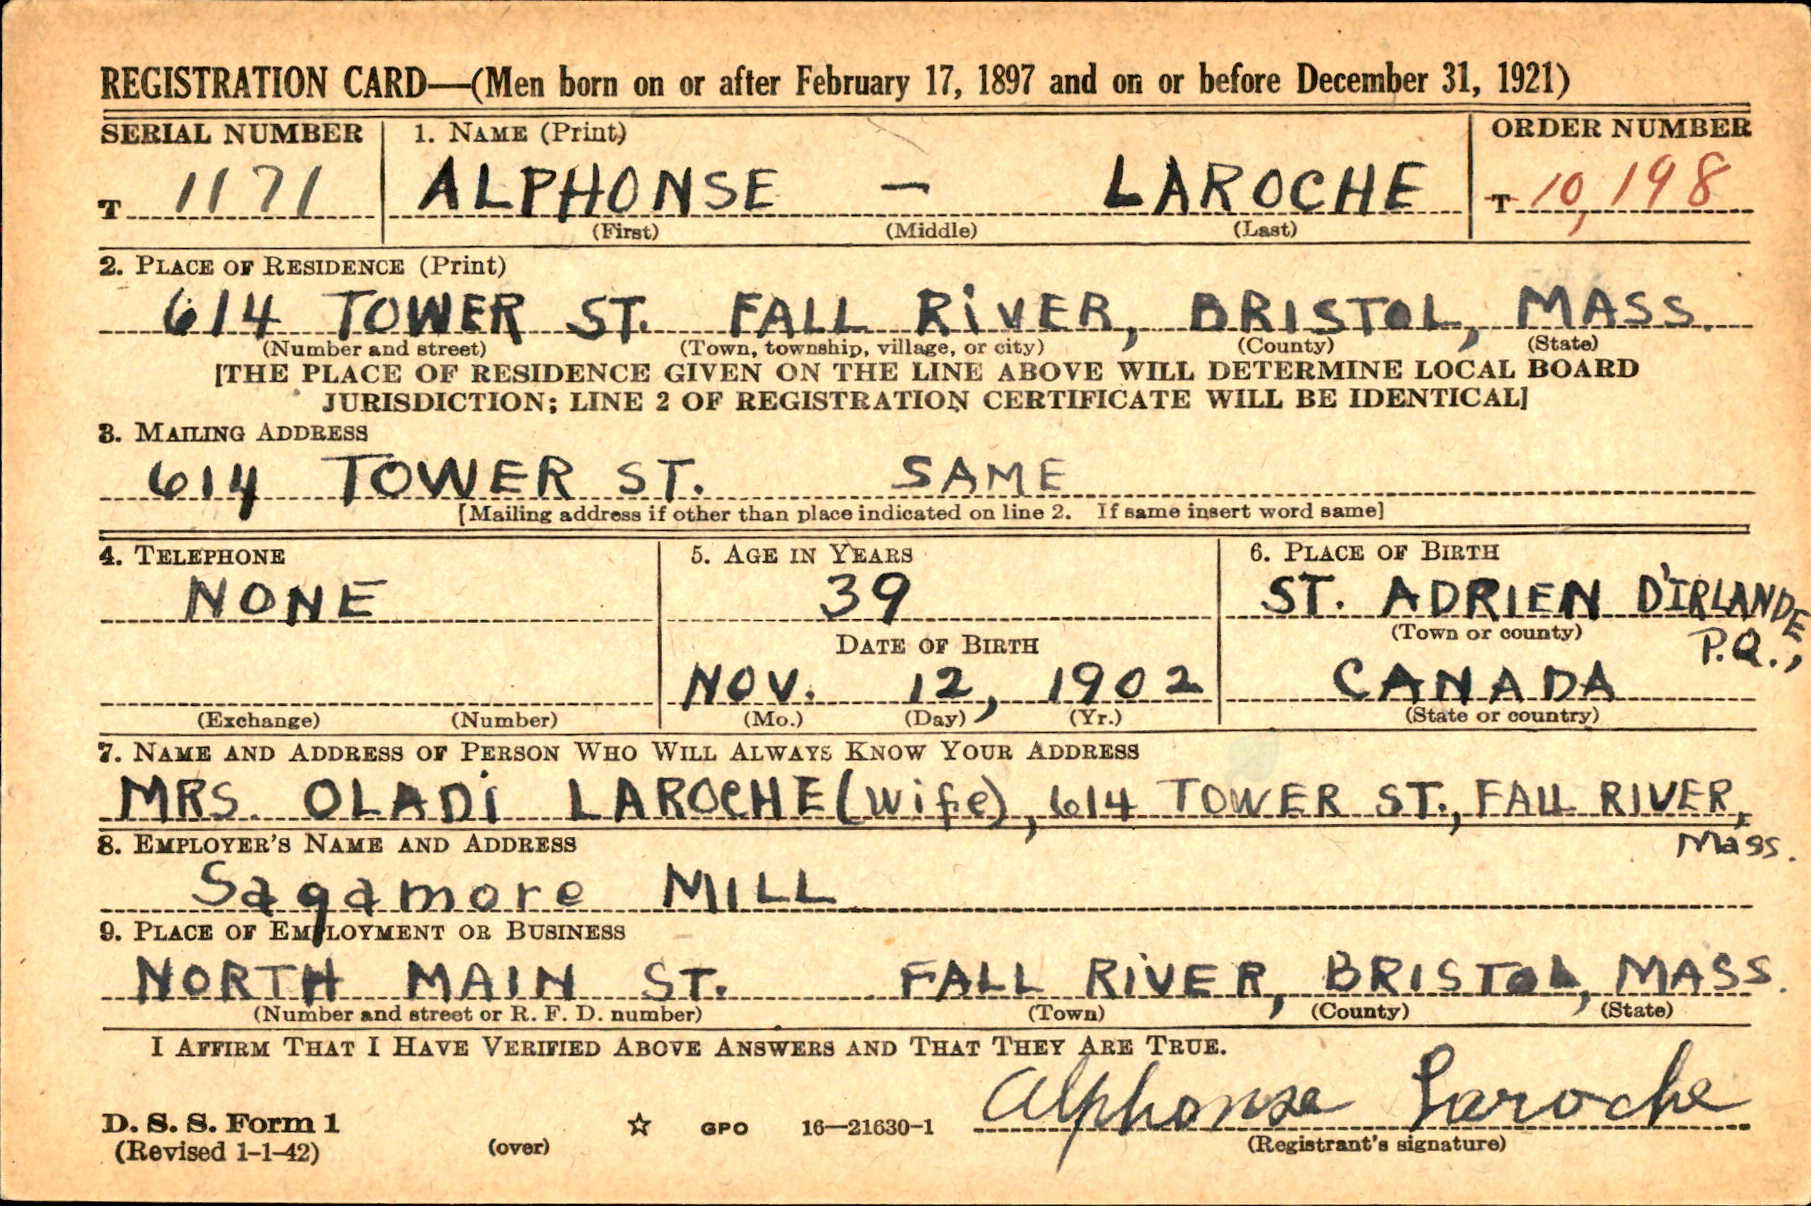 REGISTRATION CARD—(Men born on or after February 17, 1897 and on or before December 31, 1921)
SERIAL NUMBER 1. NAME (Print) ORDER NUMBER
T 1171 ALPHONSE – LAROCHE T 10,198
(First) (Middle) (Last)
2. PLACE OF RESIDENCE (Print)
614 TOWER ST. FALL RIVER, BRISTOL, MASS.
(Number and street) (Town, township, village, or city) (County) (State)
[THE PLACE OF RESIDENCE GIVEN ON THE LINE ABOVE WILL DETERMINE LOCAL BOARD
JURISDICTION; LINE 2 OF REGISTRATION CERTIFICATE WILL BE IDENTICAL]
3. MAILING ADDRESS
614 TOWER ST. SAME
[Mailing address if other than place indicated on line 2. If same insert word same]
4. TELEPHONE 5. AGE IN YEARS 6. PLACE OF BIRTH
NONE 39 ST. ADRIEN D'IRLANDE
(Town or county) P.Q.,
DATE OF BIRTH
NOV. 12, 1902 CANADA
(Exchange) (Number) (Mo.) (Day) (Yr.) (State or country)
7. NAME AND ADDRESS OF PERSON WHO WILL ALWAYS KNOW YOUR ADDRESS
MRS. OLADI LAROCHE (wife), 614 TOWER ST., FALL RIVER,
Mass.
8. EMPLOYER'S NAME AND ADDRESS
Sagamore MILL
9. PLACE OF EMPLOYMENT OR BUSINESS
NORTH MAIN ST. FALL RIVER, BRISTOL, MASS.
(Number and street or R. F. D. number) (Town) (County) (State)
I AFFIRM THAT I HAVE VERIFIED ABOVE ANSWERS AND THAT THEY ARE TRUE.
Alphonse Laroche
D. S. S. Form 1
(Revised 1-1-42) (over) ☆ GPO 16—21630-1 (Registrant's signature)